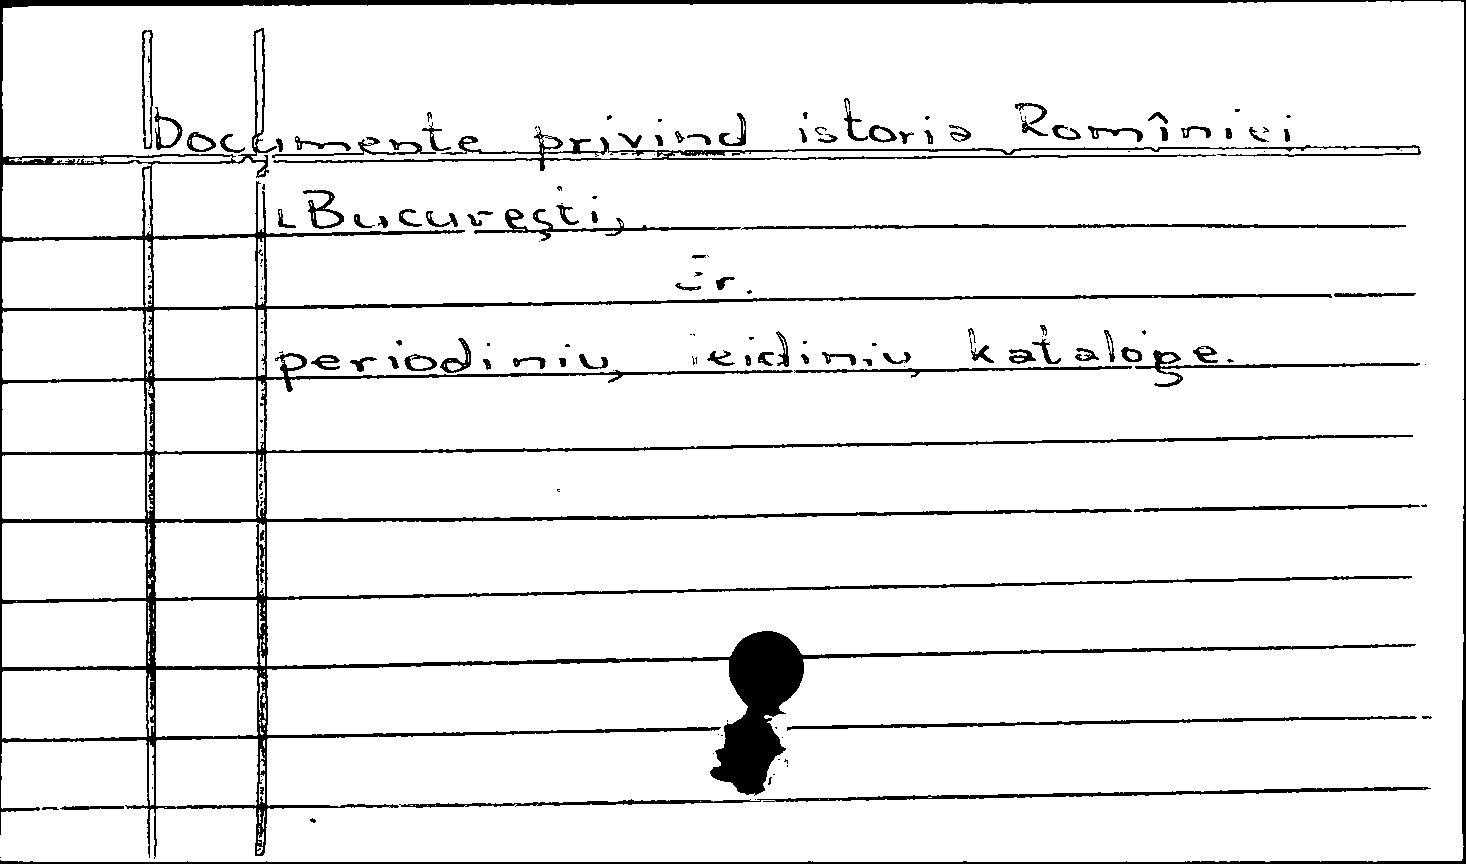 Documente privind istoria Romîniei
București,
Žr.
periodinių leidinių kataloge.